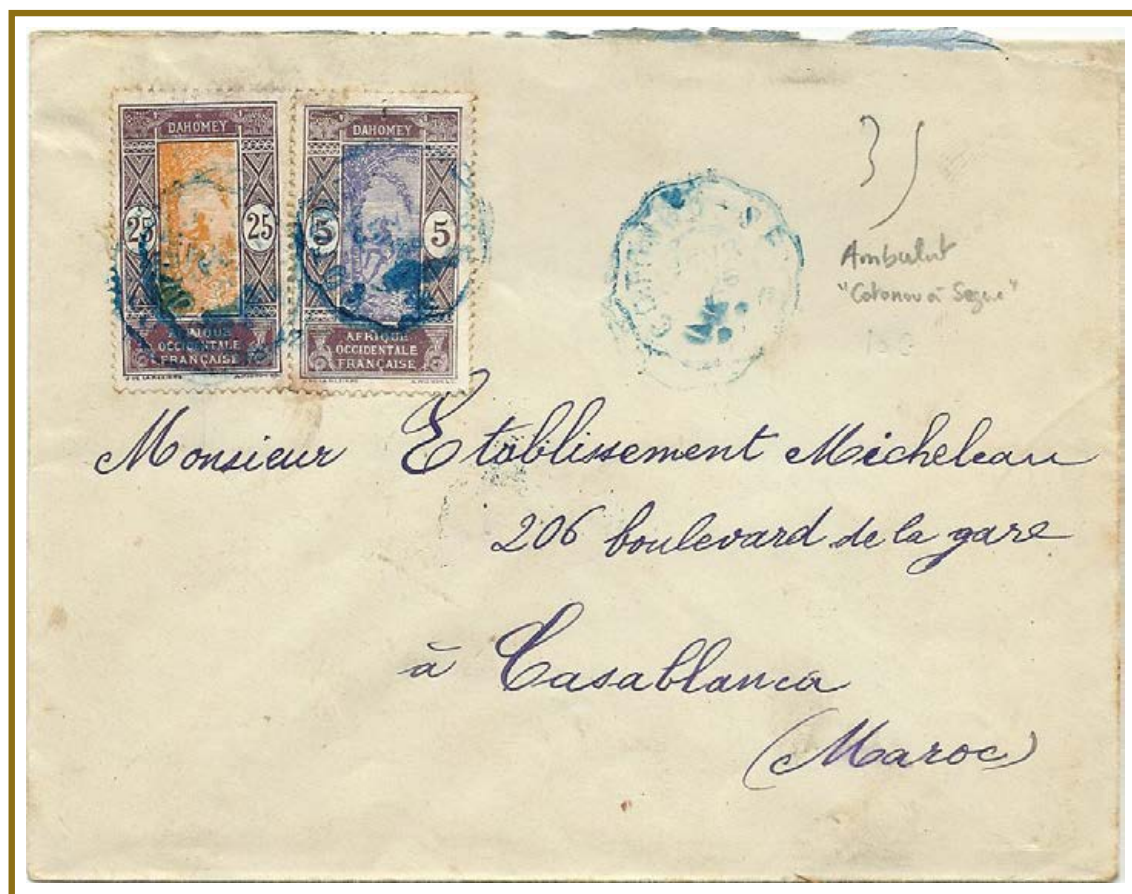 DAHOMEY
25 25
AFRIQUE
OCCIDENTALE
FRANÇAISE
DAHOMEY
5 5
AFRIQUE
OCCIDENTALE
FRANÇAISE
Monsieur Etablissement Micheleau
206 boulevard de la gare
à Casablanca
(Maroc)